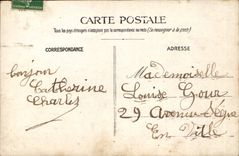 CARTE POSTALE
Tous les pays étrangers n'acceptent pas la correspondance au recto (Se renseigner à la poste)
CORRESPONDANCE
ADRESSE
Bonjour
Catherine
Charles
Mademoiselle
Louise Gour
29 Avenue Ségur
En Ville